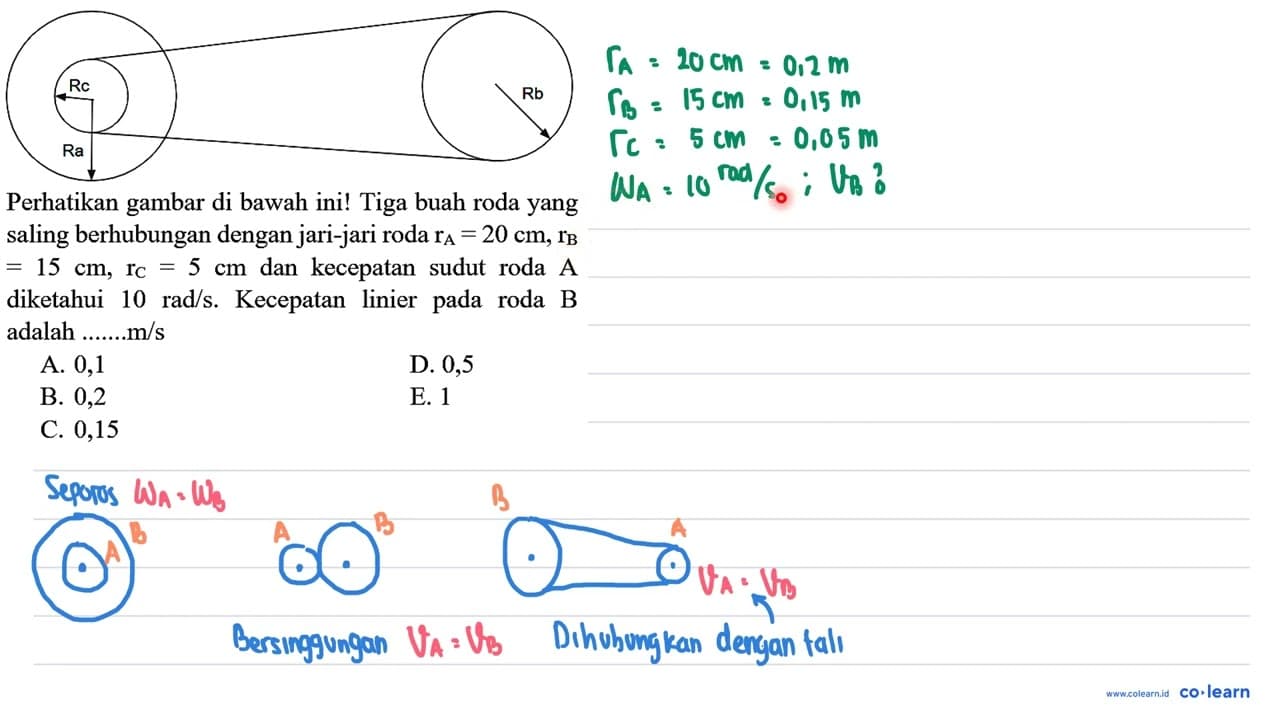 Rc
Ra
Rb
rA = 20 cm = 0,2 m
rB = 15 cm = 0,15 m
rC = 5 cm = 0,05 m
WA = 10 rad/s ; VB ?
Perhatikan gambar di bawah ini! Tiga buah roda yang
saling berhubungan dengan jari-jari roda rA = 20 cm, rB
= 15 cm, rC = 5 cm dan kecepatan sudut roda A
diketahui 10 rad/s. Kecepatan linier pada roda B
adalah .......m/s
A. 0,1
B. 0,2
C. 0,15
D. 0,5
E. 1
Seporos WA = WB
A B
A B
B A
VA = VB
Bersinggungan VA = VB
Dihubungkan dengan tali
www.colearn.id co·learn